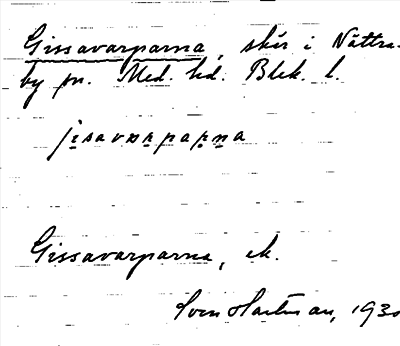 Gissavarparna, skär i Nättra-
by sn. Med. hd. Blek. l.
jisavarparna
Gissavarparna, ek.
Sven Hartman, 193